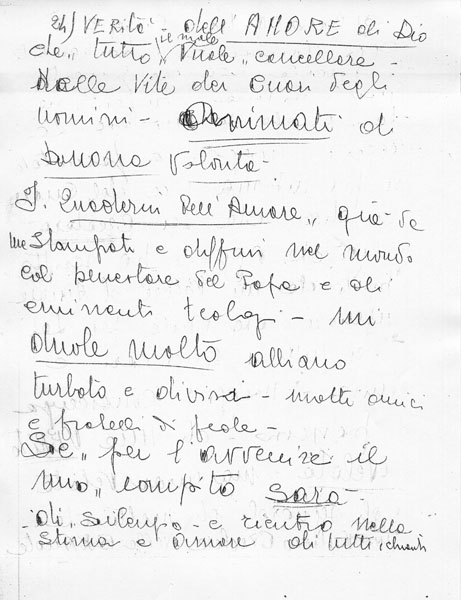 24) VERità dell'AMORE di Dio
che „ tutto il male Vuole „ cancellare -
Dalle Vite dei Cuori degli
uomini - Animati di
buona Volontà -
I. Quaderni dell'Amore „ già da
me Stampati e diffusi nel mondo
col benestare del Papa e di
eminenti teologi - mi
duole molto abbiano
turbato e diviso - molti amici
e fratelli di fede -
Se „ per l'avvenire il
mio „ compito sarà -
di „ silenzio - e rientro nella
stima e amore di tutti,